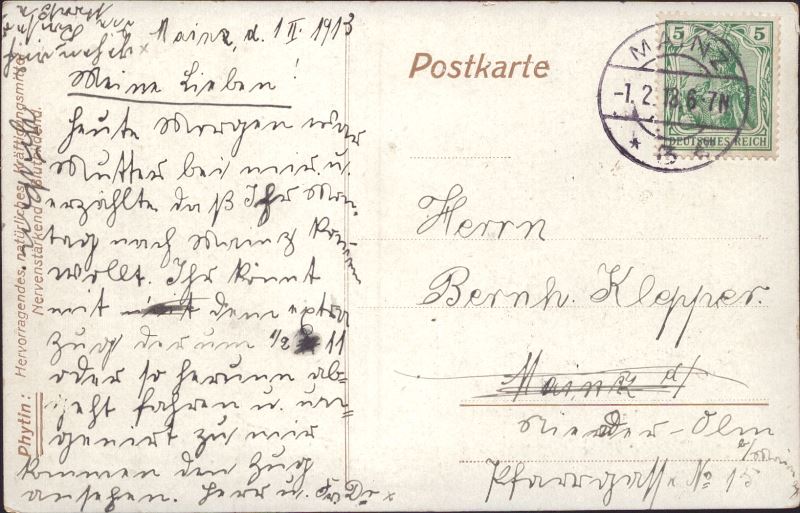 Mainz, d. 1 II. 1913
Meine Lieben!
heute Morgen war
Mutter bei mir u.
erzählte daß Ihr Mon-
tag nach Mainz kommen
wollt. Ihr könnt
mit dem extra
Zug der um 1/2 11
oder so herum ab-
geht fahren u. un-
geniert zu mir
kommen den Zug
ansehen. Herr u. Fr. Dr ×
Phytin: Hervorragendes, natürliches Kräftigungsmittel
Nervenstärkend, blutbildend.
Postkarte
5 5
DEUTSCHES REICH
MAINZ
-1.2.13.6-7N
* *
Herrn
Bernh. Klepper.
Mainz
Nieder-Olm
b/Mainz
Pfarrgasse No 15